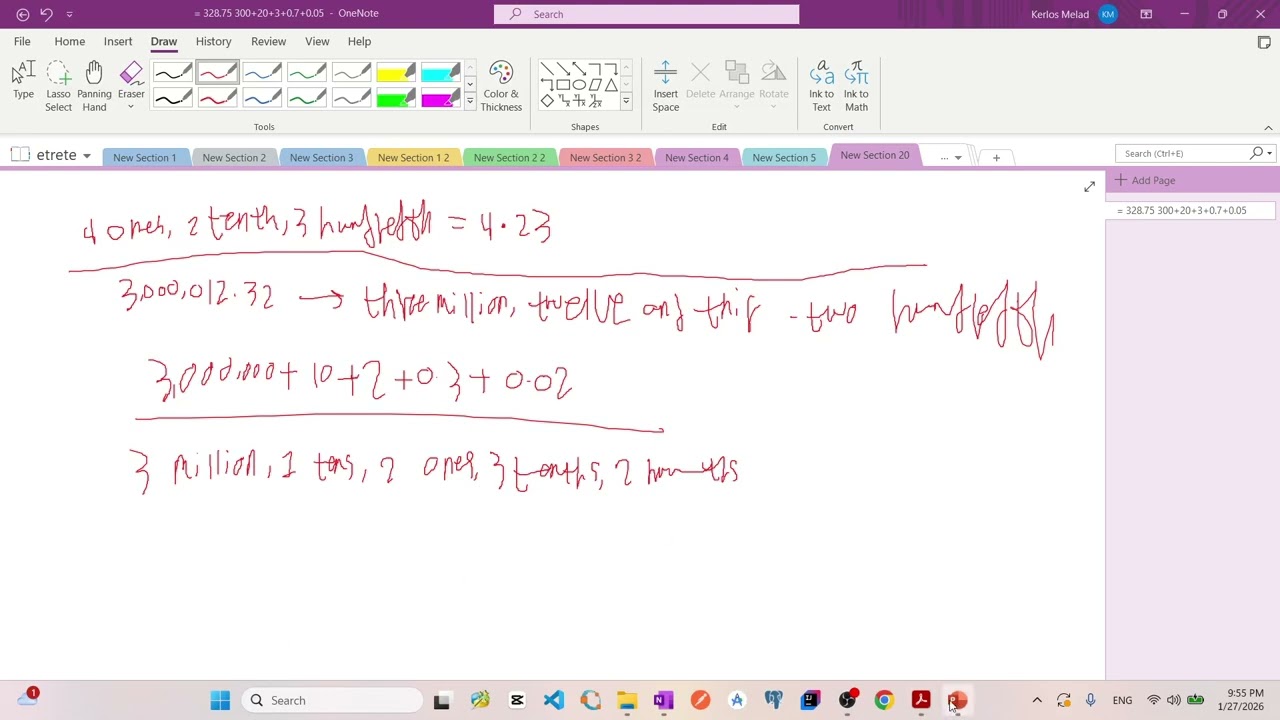 = 328.75 300+20+3+0.7+0.05 - OneNote
Search
Kerlos Melad KM
File Home Insert Draw History Review View Help
Type Lasso Select Panning Hand Eraser Color & Thickness Insert Space Delete Arrange Rotate Ink to Text Ink to Math
Tools Shapes Edit Convert
etrete New Section 1 New Section 2 New Section 3 New Section 1 2 New Section 2 2 New Section 3 2 New Section 4 New Section 5 New Section 20 ... + Search (Ctrl+E)
Add Page
= 328.75 300+20+3+0.7+0.05
4 ones, 2 tenth, 3 = 4.23
3,000,012.32 → three million, twelve and - two
3,000,000 + 10 + 2 + 0.3 + 0.02
3 million, 1 tens, 2 ones, 3 tenths, 2
1 Search ENG 9:55 PM
1/27/2026